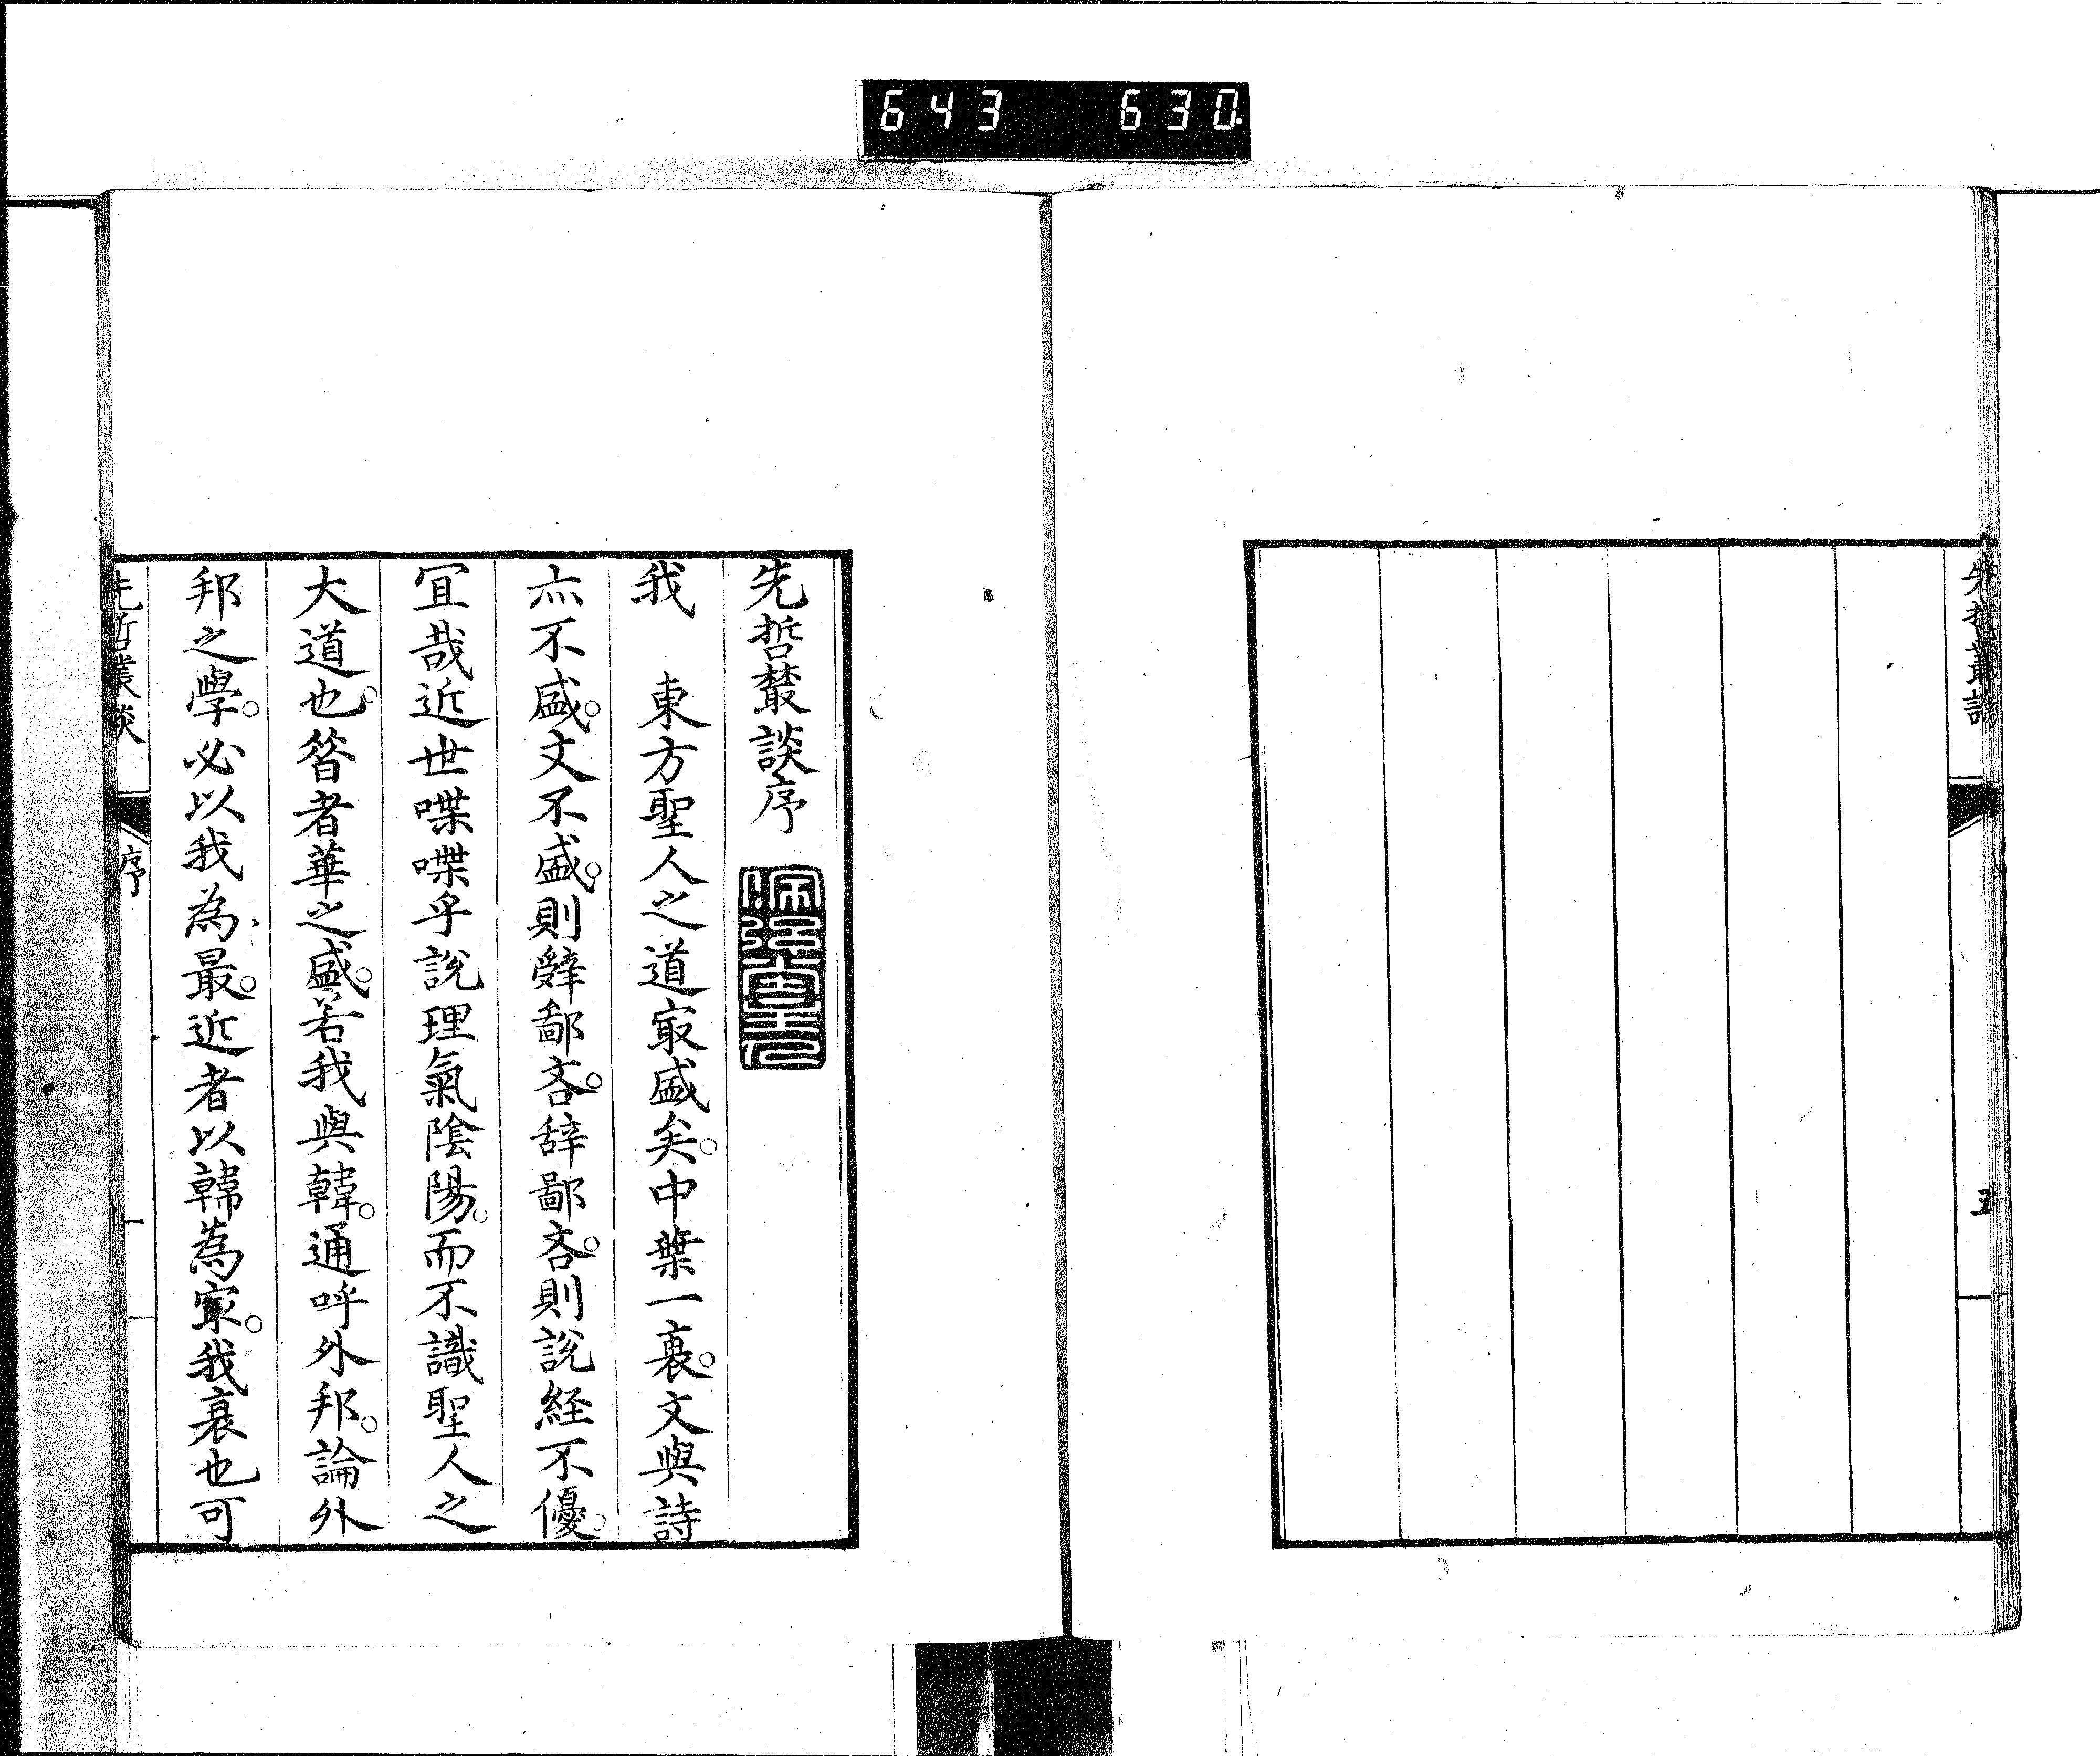 643 630
先哲叢談
五
先哲藂談序
我　東方聖人之道冣盛矣。中葉一衰。文與詩
亦不盛。文不盛。則辤鄙吝。辞鄙吝。則說経不優。
冝哉近世喋喋乎說理氣陰陽。而不識聖人之
大道也。昝者華之盛。若我與韓。通呼外邦。論外
邦之學。必以我為最。近者以韓為冣。我衰也可
先哲叢談
序
一